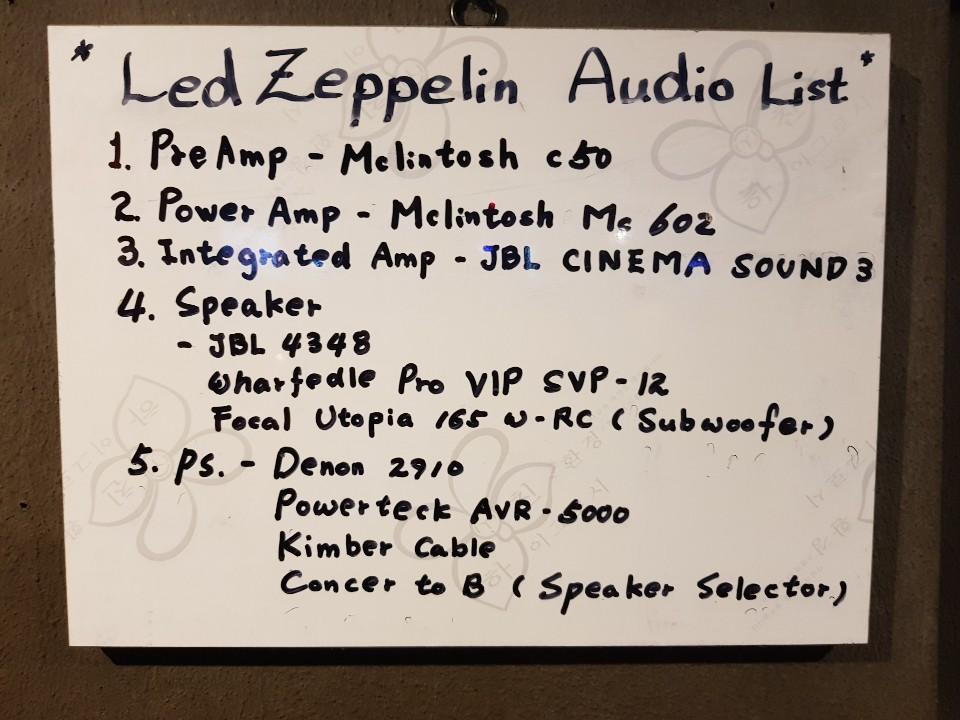 * Led Zeppelin Audio List *
1. Pre Amp - Mclintosh c50
2. Power Amp - Mclintosh Mc 602
3. Integrated Amp - JBL CINEMA SOUND 3
4. Speaker
- JBL 4348
Wharfedle Pro VIP SVP-12
Focal Utopia 165 w-RC (Subwoofer)
5. Ps. - Denon 2910
Powerteck AVR-5000
Kimber Cable
Concer to B (Speaker Selector)